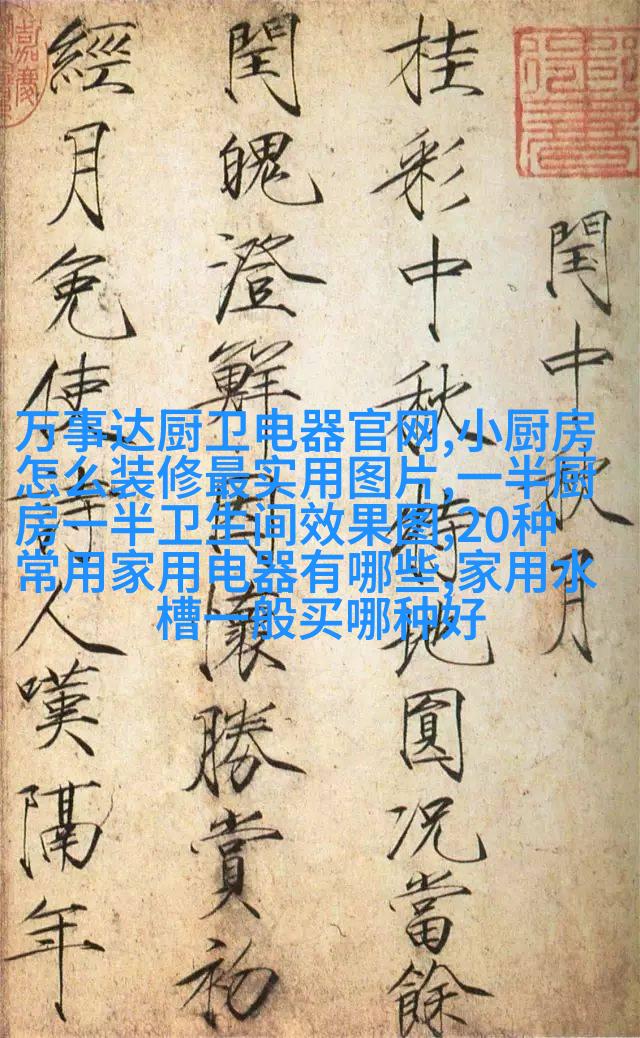 閏中秋月
桂彩中秋特地圓况當餘
閏魄澄鮮因懷勝賞初
經月免使詩人嘆隔年
万事达厨卫电器官网,小厨房
怎么装修最实用图片,一半厨
房一半卫生间效果图,20种
常用家用电器有哪些,家用水
槽一般买哪种好